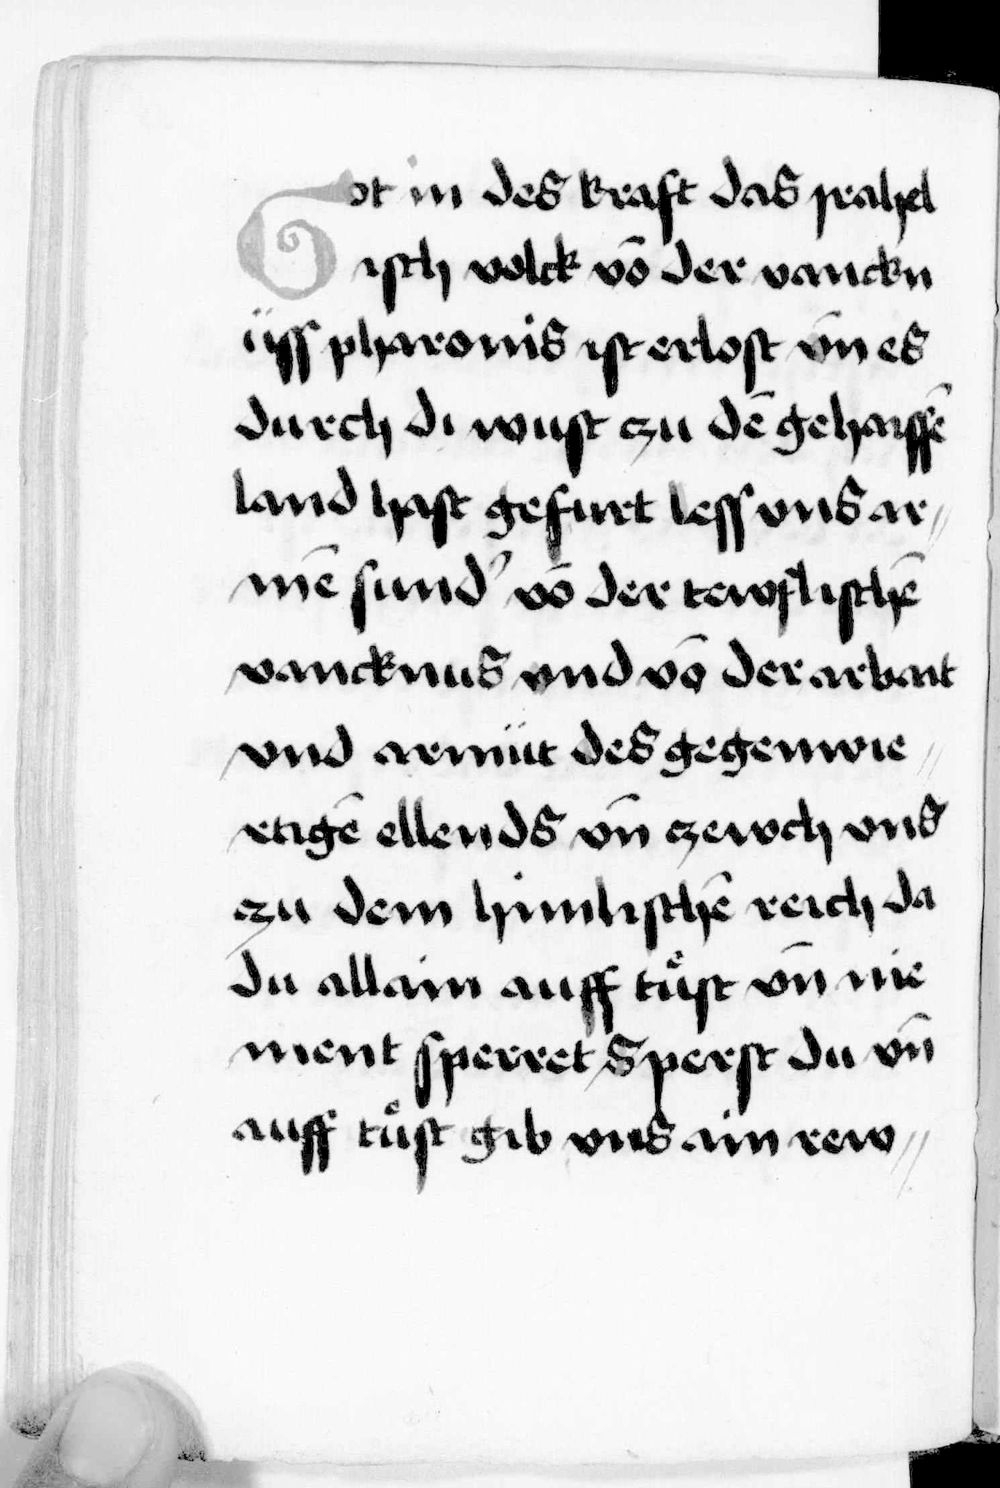 Got in des kraft das jrahel
isch volck vō der vanckn
üss pharonis ist erlost vn̄ es
durch di wust zu dē gehaissē
land hast gefurt less vns ar⸗
mē sund' vō der tewflischē
vancknus vnd vō der arbait
vnd armüt des gegenwie⸗
rtigē ellends vn̄ zewch vns
zu dem himlischē reich da
du allain auff tuͤst vn̄ nie
ment sperret Sperst du vn̄
auff tuͤst gib vns ain rew⸗